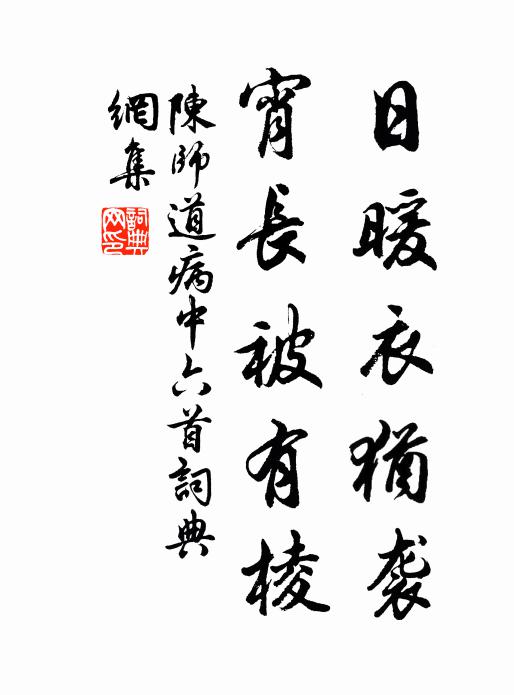 日暖衣猶袭
宵長被有棱
陳師道病中六首詞典
網集
詞典
网印